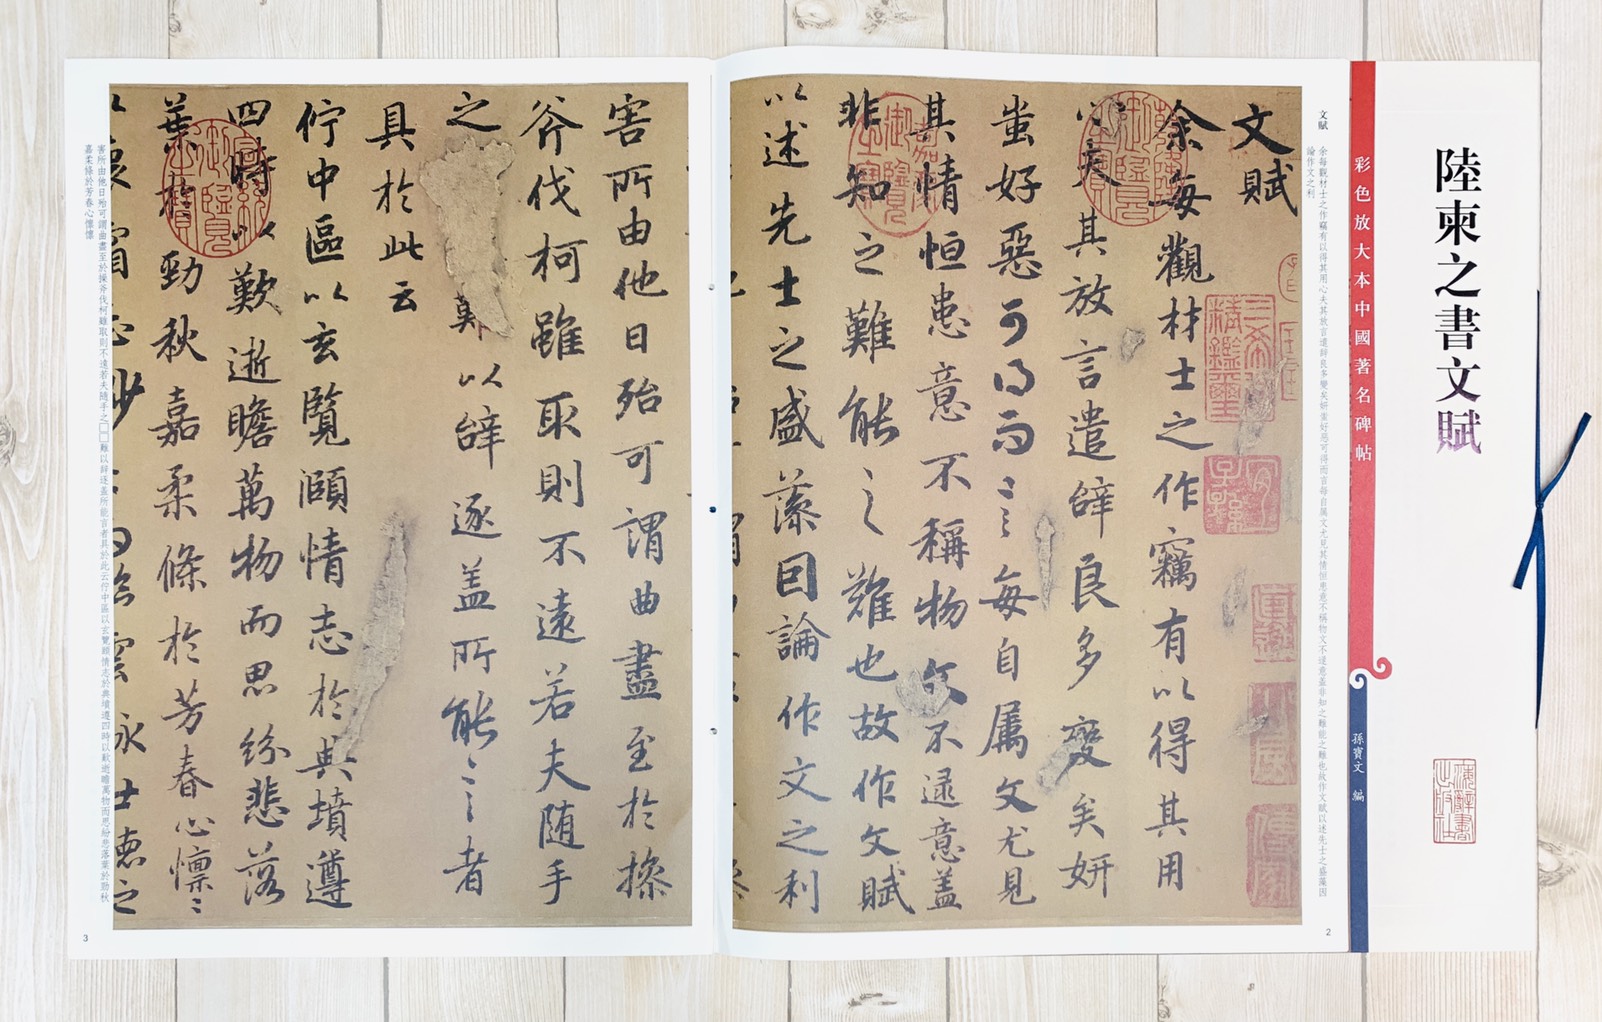 陸柬之書文賦
彩色放大本中國著名碑帖
孫寶文 編
文賦
余每觀材士之作竊有以得其用心夫其放言遣辭良多變矣妍蚩好惡可得而言每自屬文尤見其情恒患意不稱物文不逮意蓋非知之難能之難也故作文賦以述先士之盛藻因
論作文之利
文賦
余每觀材士之作竊有以得其用
心夫其放言遣辭良多變矣妍
蚩好惡可得而言每自屬文尤見
其情恒患意不稱物文不逮意盖
非知之難能之難也故作文賦
以述先士之盛藻因論作文之利
2
害所由他日殆可謂曲盡至於操
斧伐柯雖取則不遠若夫随手
之難以辭逐盖所能言者
具於此云
佇中區以玄覽頤情志於典墳遵
四時以歎逝瞻萬物而思紛悲落
葉於勁秋嘉柔條於芳春心懍懍
害所由他日殆可謂曲盡至於操斧伐柯雖取則不遠若夫隨手之□□難以辭逐蓋所能言者具於此云佇中區以玄覽頤情志於典墳遵四時以歎逝瞻萬物而思紛悲落葉於勁秋
嘉柔條於芳春心懍懍
3